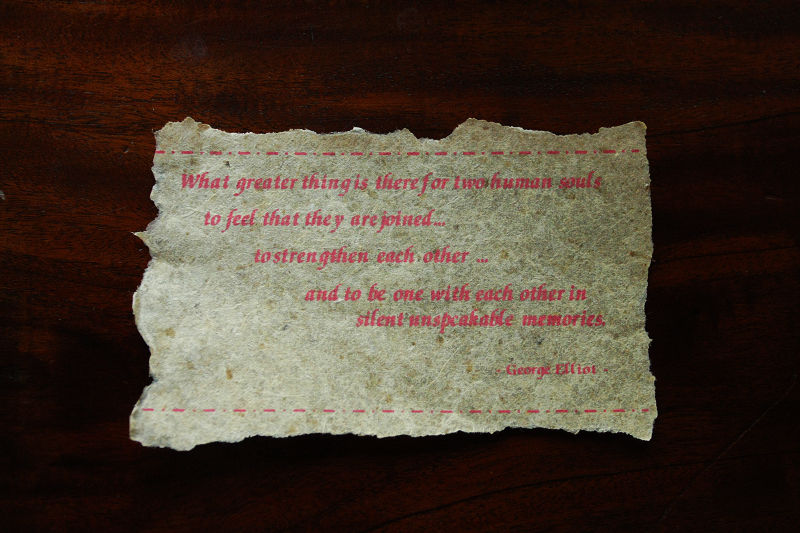 What greater thing is there for two human souls
to feel that they are joined...
to strengthen each other ...
and to be one with each other in
silent unspeakable memories.
- George Elliot -